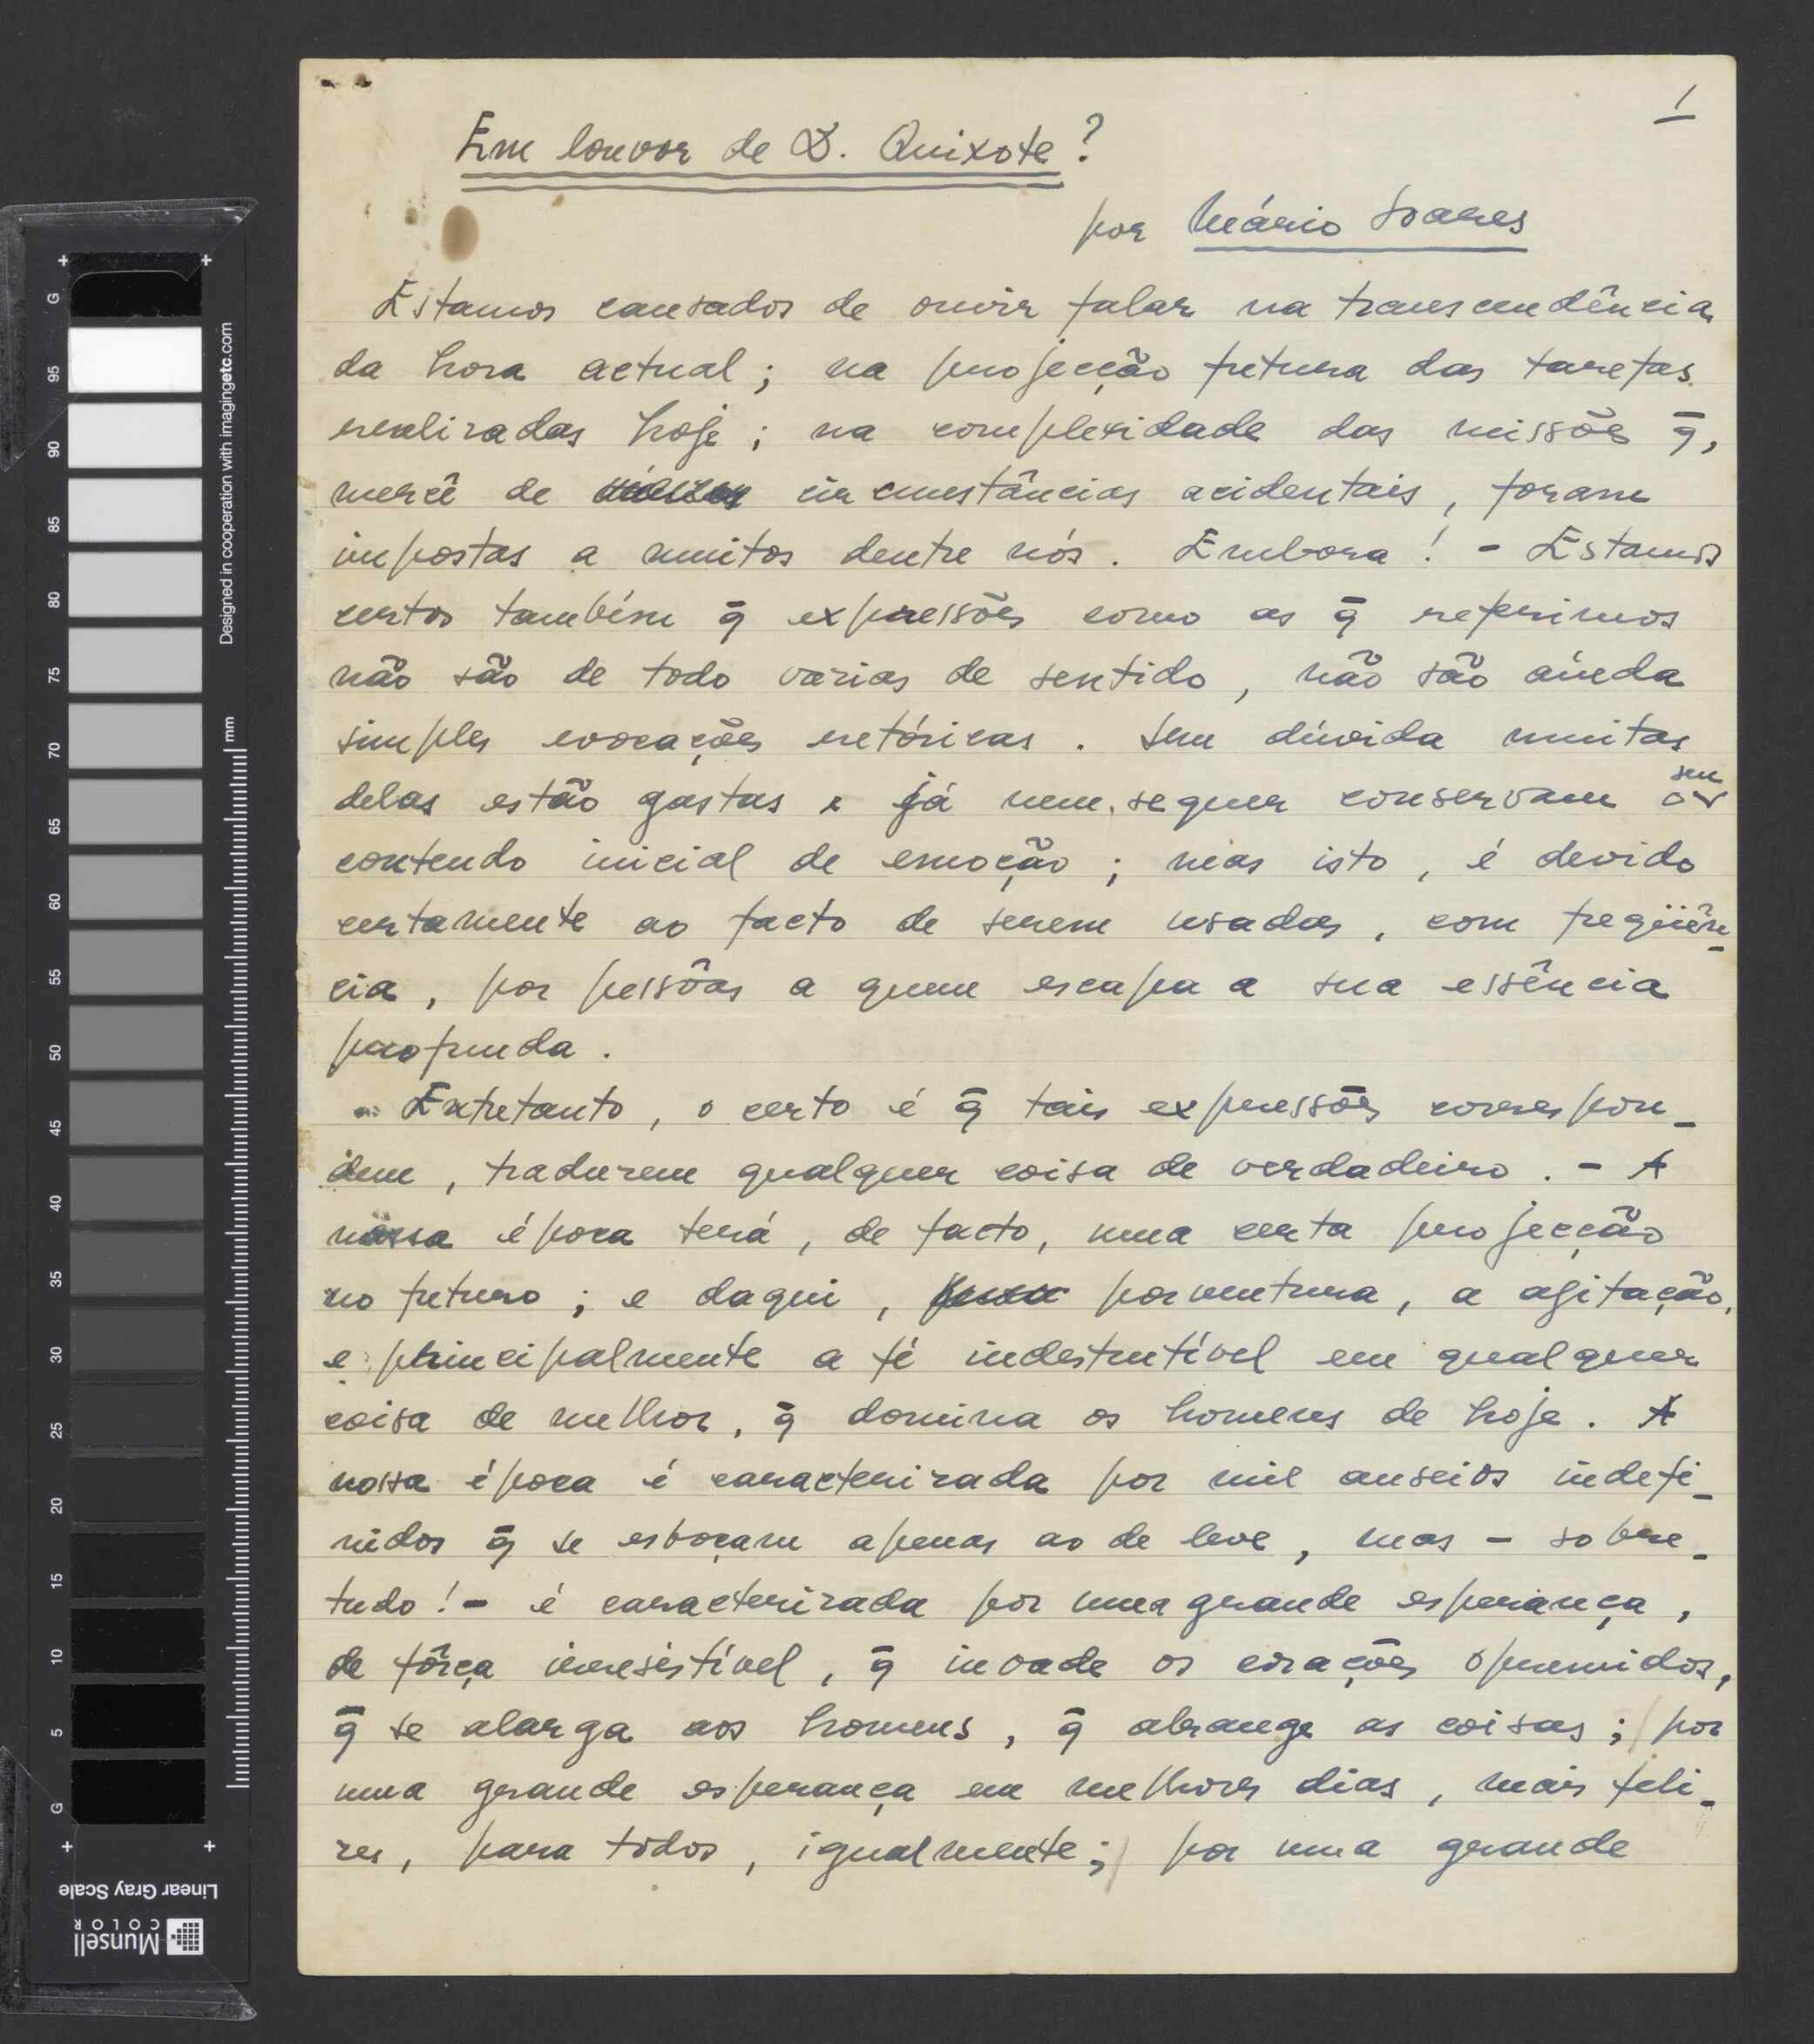 1
Em louvor de D. Quixote?
por Mário Soares
Estamos cansados de ouvir falar na transcendência
da hora actual; na projecção futura das tarefas
realizadas hoje; na complexidade das missões q̄,
mercê de circunstâncias acidentais, foram
impostas a muitos dentre nós. Embora! - Estamos
certos também q̄ expressões como as q̄ referimos
não são de todo vazias de sentido, não são ainda
simples evocações retóricas. Sem dúvida muitas
delas estão gastas e já nem sequer conservam seu
contendo inicial de emoção; mas isto, é devido
certamente ao facto de serem usadas, com freqüên-
cia, por pessôas a quem escapa a sua essência
profunda.
Entretanto, o certo é q̄ tais expressões correspon-
dem, traduzem qualquer coisa de verdadeiro. - A
nossa época terá, de facto, uma certa projecção
no futuro; e daqui, porventura, a agitação,
e principalmente a fé indestrutível em qualquer
coisa de melhor, q̄ domina os homens de hoje. A
nossa época é caracterizada por mil anseios indefi-
nidos q̄ se esboçam apenas ao de leve, mas - sobre-
tudo! - é caracterizada por uma grande esperança,
de fôrça irresistível, q̄ invade os corações opremidos,
q̄ se alarga aos homens, q̄ abrange as coisas; por
uma grande esperança em melhores dias, mais feli-
zes, para todos, igualmente; por uma grande
G
95
90
85
80
75
70
65
60
55
50
45
40
35
30
25
20
15
10
5
G
mm
Designed in cooperation with imagingetc.com
Linear Gray Scale
Munsell
COLOR